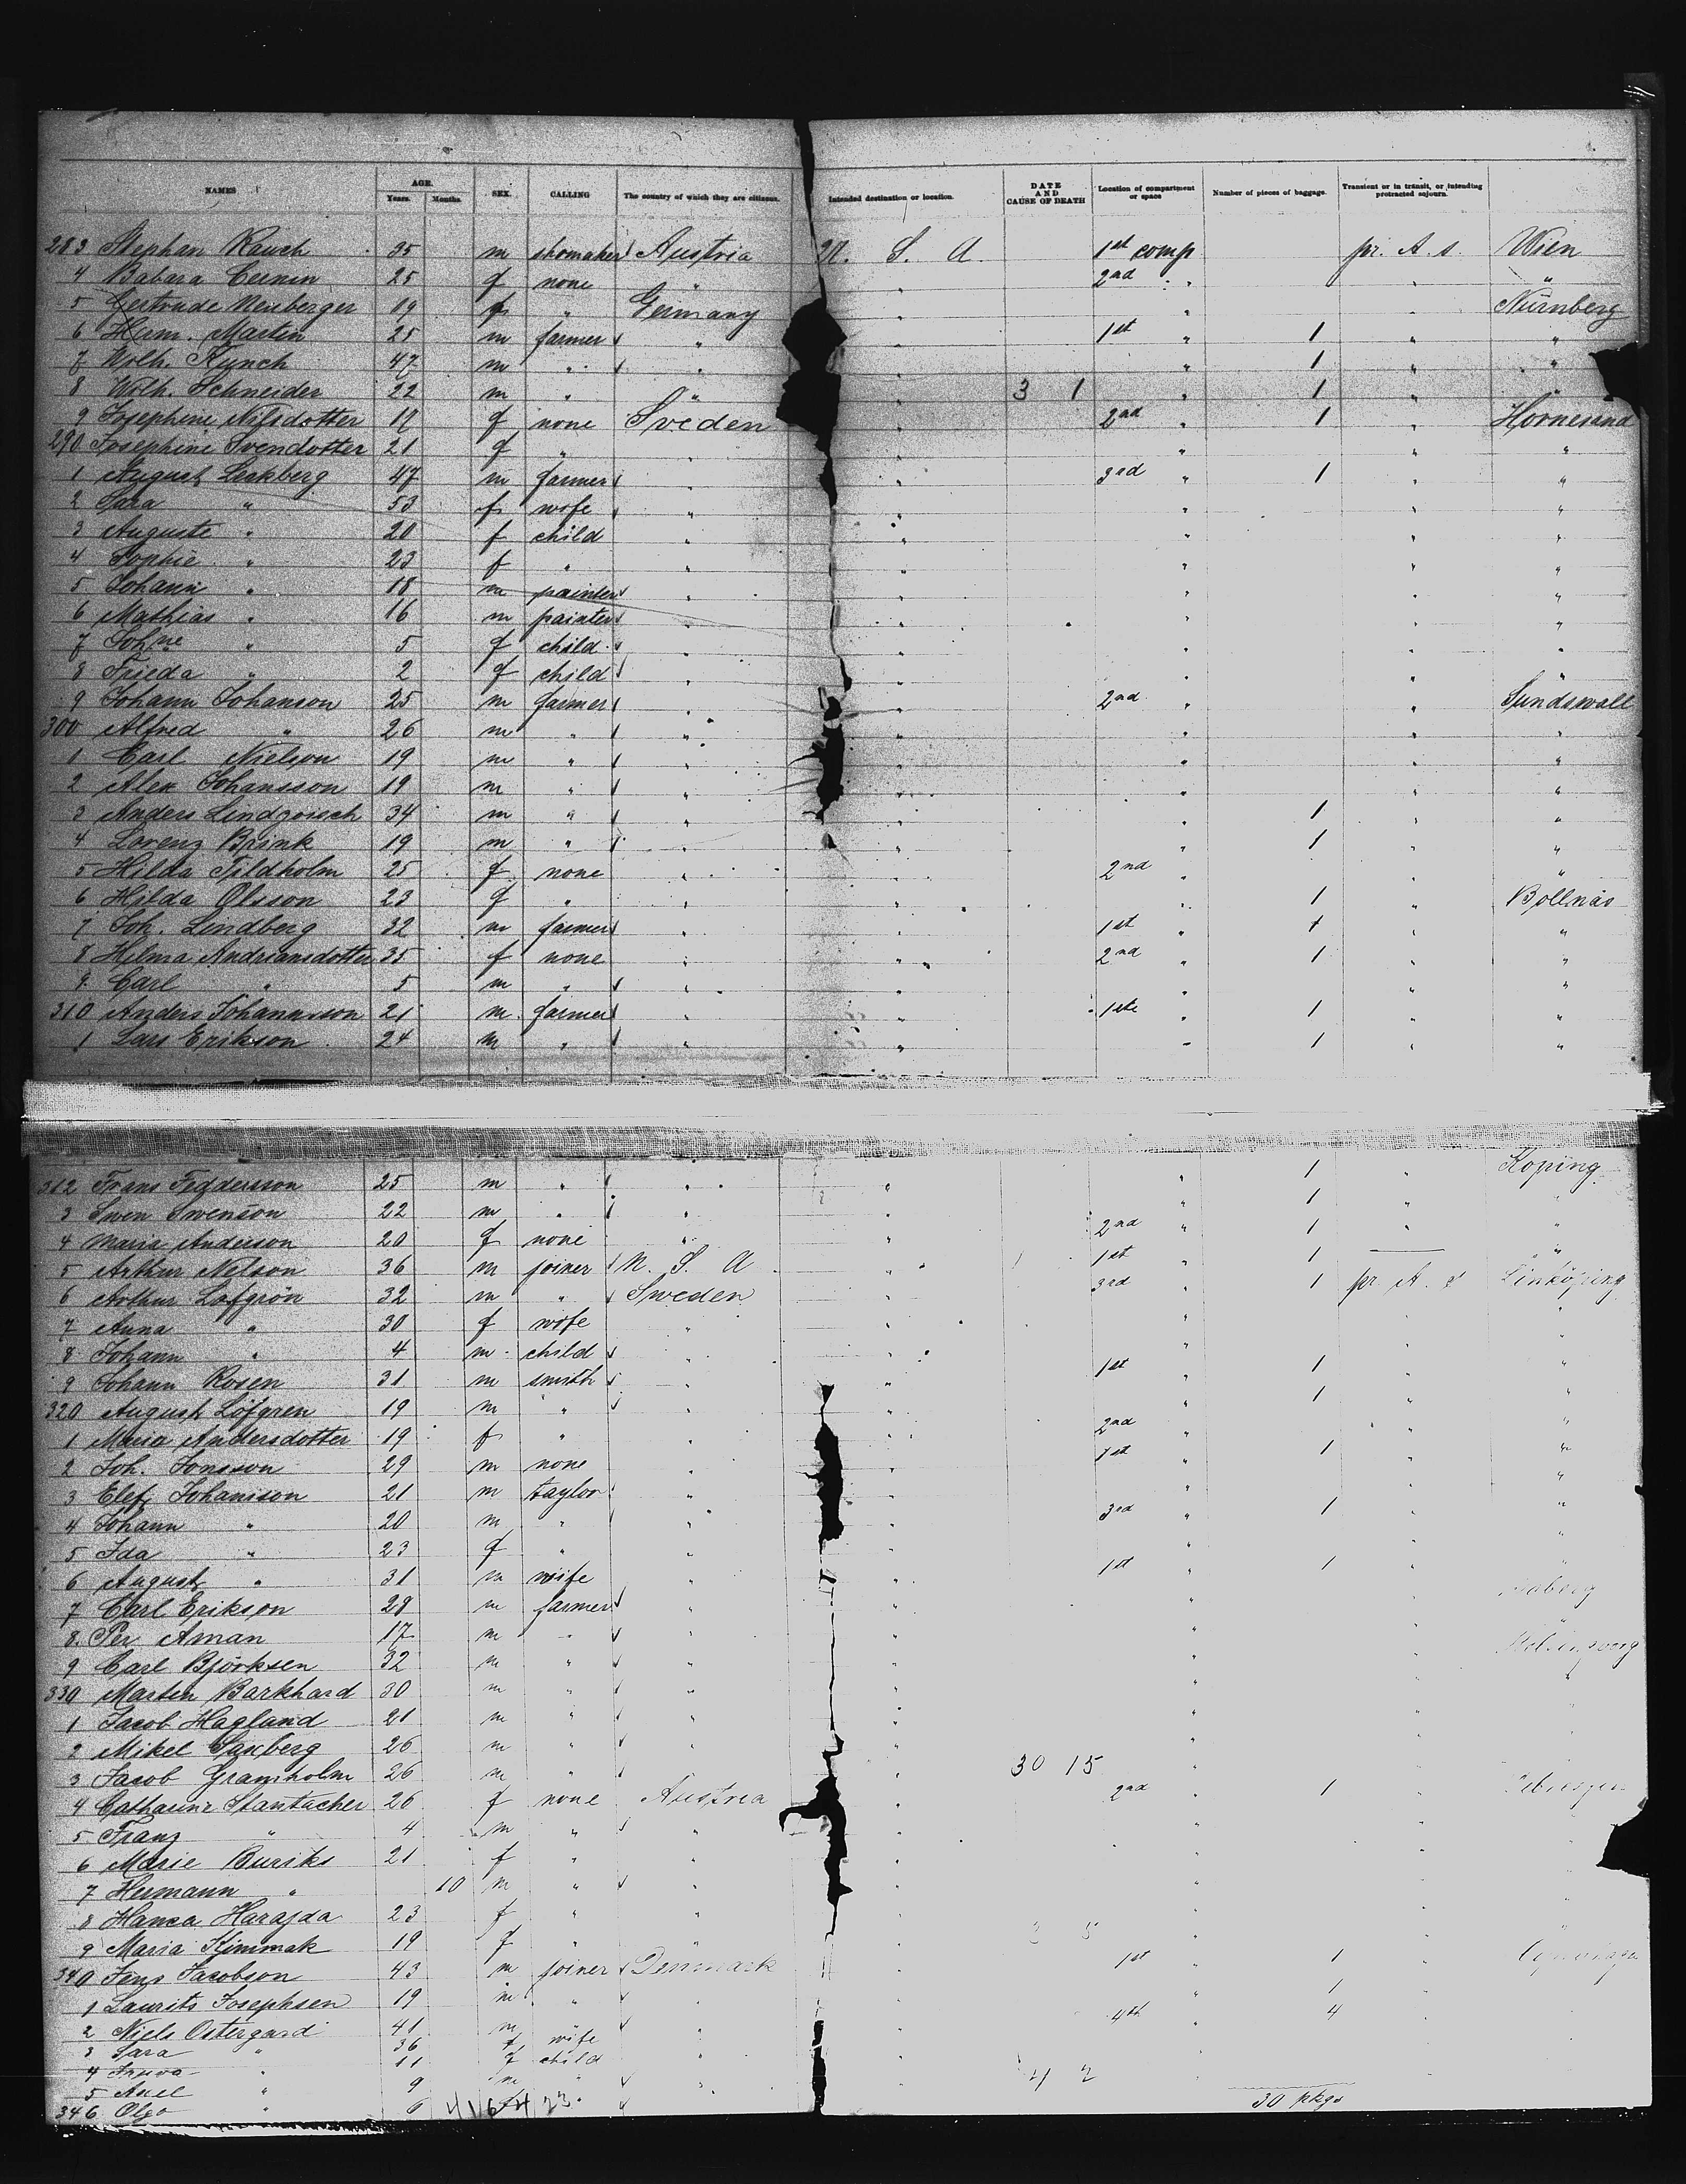 NAMES AGE. Years. Months. SEX. CALLING The country of which they are citizens. Intended destination or location. DATE AND CAUSE OF DEATH Location of compartment or space Number of pieces of baggage. Transient or in transit, or intending protracted sojourn.
283 Stephan Rauch 35 m shomaker Austria U. S. A. 1st comp pr. A. s. Wien
4 Babara Cernin 25 f none " " 2nd " " "
5 Gertrude Neuberger 19 f " Germany " " " Nürnberg
6 Herm. Martin 25 m farmer " " 1st " 1 " "
7 Wilh. Kunch 47 m " " " " 1 " "
8 Wilh. Schneider 22 m " " " 3 1 " 1 " "
9 Josephine Nilsdotter 19 f none Sveden " 2nd " 1 " Hörnesand
290 Josephine Svendotter 21 f " " " " " "
1 August Lerkberg 47 m farmer " " 3rd " 1 " "
2 Sara " 53 f wife " " " " "
3 Auguste " 20 f child " " " " "
4 Sophie " 23 f " " " " " "
5 Johann " 18 m painter " " " " "
6 Mathias " 16 m painter " " " " "
7 Johne " 5 f child " " " " "
8 Frieda " 2 f child " " " " "
9 Johann Johanson 25 m farmer " " 2nd " " Sundswall
300 Alfred " 26 m " " " " " "
1 Carl Nielson 19 m " " " " " "
2 Alex Johansson 19 m " " " " " "
3 Anders 34 m " " " " 1 " "
4 Lorenz Brink 19 m " " " " 1 " "
5 Hilda Tildholm 25 f none " " 2nd " " "
6 Hilda Olsson 23 f " " " " 1 " Bollnäs
7 Joh. Lindberg 32 m farmer " " 1st " 1 " "
8 Helma Andriansdotter 35 f none " " 2nd " 1 " "
9 Carl " 5 m " " " " " "
310 Anders Johannsson 21 m farmer " " 1ste " 1 " "
1 Lars Erikson 24 m " " " " 1 " "
312 Frans Feddersson 25 m " " " " 1 " Köping
3 Swen Swenson 22 m " " " " 1 " "
4 Maria Anderson 20 f none " " 2nd " 1 " "
5 Arthur Nelson 36 m joiner U. S. A " 1st " 1 — "
6 Arthur Lofgrön 32 m " Sweden " 3rd " 1 pr A. s Linköping
7 Anna " 30 f wife " " " " "
8 Johann " 4 m child " " " " "
9 Johann Rosen 31 m smith " " 1st " 1 " "
320 August Löfgren 19 m " " " " 1 " "
1 Maria Andersdotter 19 f " " " 2nd " " "
2 Joh. Jonsson 29 m none " " 1st " 1 " "
3 Elef Johanison 21 m taylor " " " " "
4 Johann " 20 m " " " 3rd " 1 " "
5 Ida " 23 f " " " " " "
6 August " 31 m wife " " 1st " 1 " "
7 Carl Erikson 29 m farmer " " " "
8 Per Aman 17 m " " " " "
9 Carl Björksen 32 m " " " " "
330 Marten Barkhard 30 m " " " " " "
1 Jacob Haglund 21 m " " " " "
2 Mikel Saxberg 26 m " " " " "
3 Jacob Gramholm 26 m " " " 30 15 "
4 Catharine Stantacher 26 f none Austria " 2nd " 1 "
5 Franz " 4 m " " "
6 Marie Buriks 21 f " " "
7 Hermann " 10 m " " " "
8 Hanca Harajda 23 f " " " "
9 Maria Kimmak 19 f " " " 3 5 "
340 Jens Jacobson 43 m joiner Denmark " 1st " 1 " Copenhagen
1 Laurits Josephsen 19 m " " " " 1
2 Niels Ostergard 41 m " " " 4th " 4
3 Sara " 36 f wife "
4 " 11 f child "
5 Axel " 9 m " " 4 2
346 Olga " 6 f " 30 pkgs